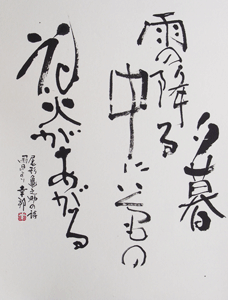 夕暮
雨の降る
中にいくつもの
花火があがる
尾形亀之助の詩
雨日より 幸郎